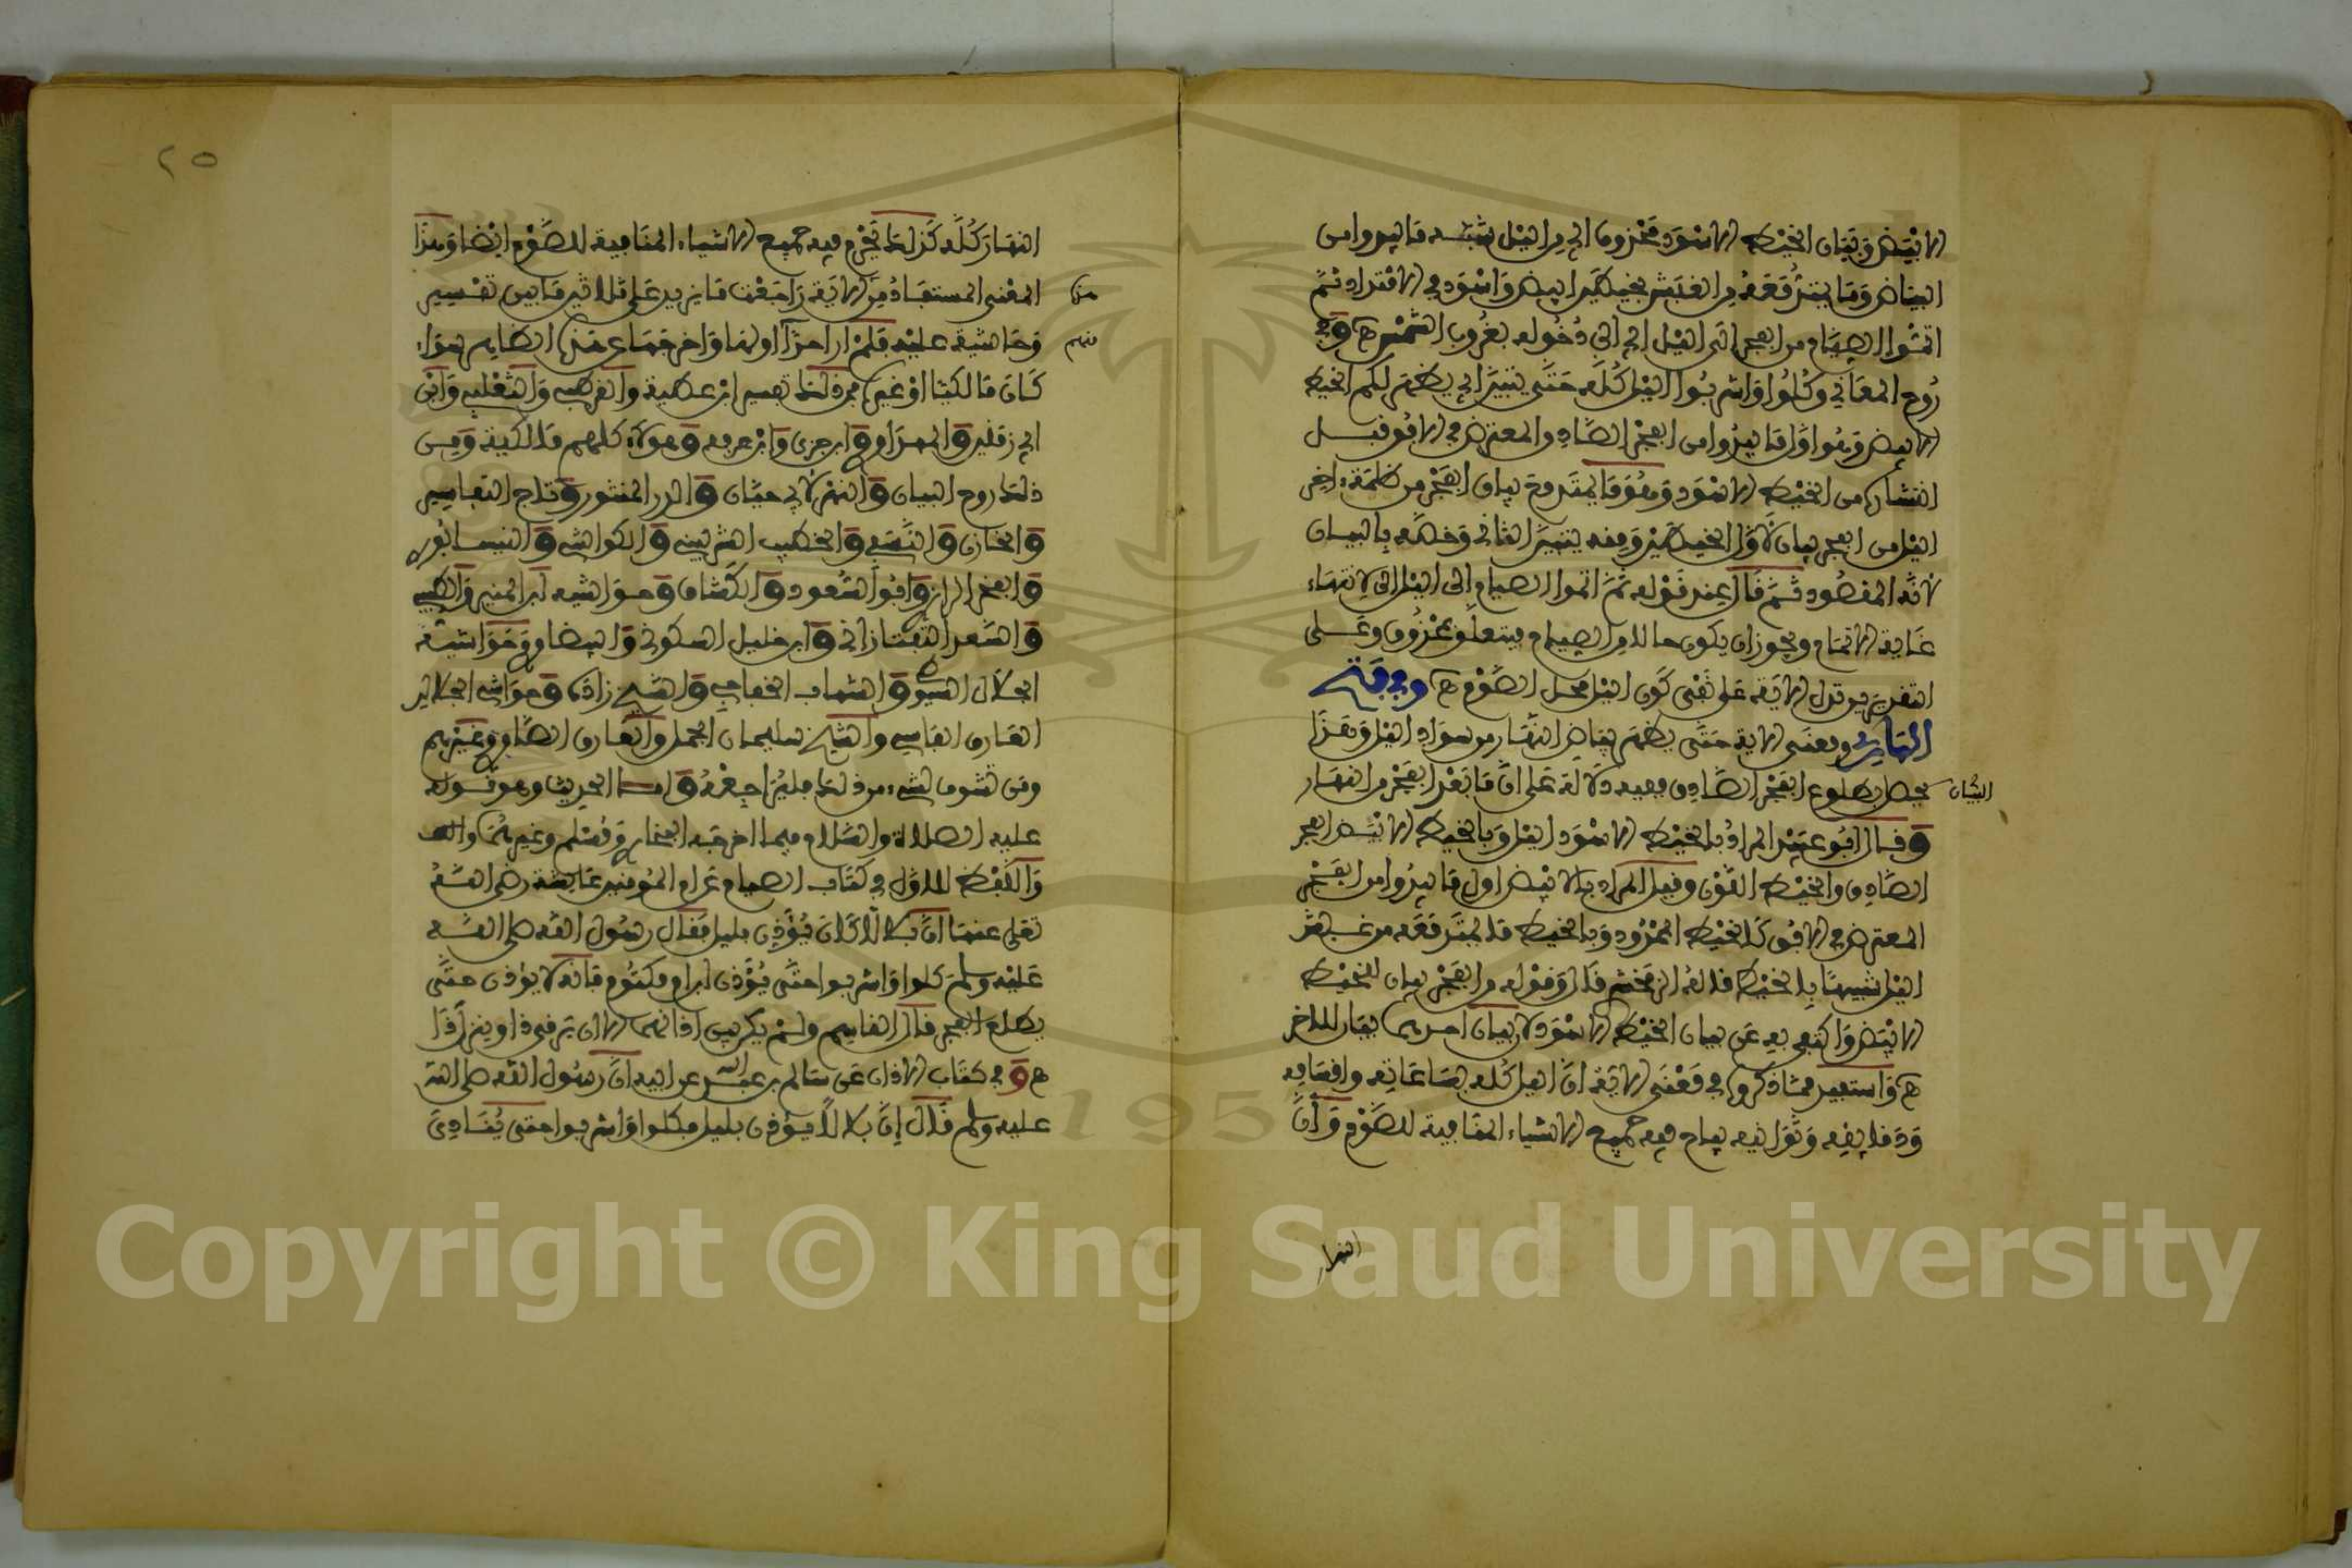 الابيض وبيان الخيط الاسود محذوف اي من اليل شبه ما يبدوا من
البياض وما يمتد معه من الغبش بخيطين ابيض واسود في الامتداد ثم
اتموا الصيام من الفجر الى اليل اي الى دخوله بغروب الشمس ه وفي
روح المعاني وكلوا واشربوا اليل كله حتى يتبين اي يظهر لكم الخيط
الابيض وهو اول ما يبدوا من الفجر الصادق المعترض في الافق قبل
انتشاره من الخيط الاسود وهو ما يمتد مع بياض الفجر من ظلمة اخر
اليل من الفجر بيان لاول الخيطين ومنه يتبين الثاني وخصه بالبيان
لانه المقصود ثم قال عند قوله ثم اتموا الصيام الى اليل الى لانتهاء
غاية الاتمام ويجوز ان يكون حالا من الصيام فيتعلق بمحذوف وعلى
التقديرين تدل الاية على نفي كون اليل محل الصوم ه وفي
ومعنى الاية حتى يظهر بياض النهار من سواد اليل وهذا
البيان يحصل بطلوع الفجر الصادق ففيه دلالة على ان ما بعد الفجر من النهار
وقال ابو عبيد المراد بالخيط الاسود اليل وبالخيط الابيض الفجر
الصادق والخيط اللون وقيل المراد بالابيض اول ما يبدوا من الفجر
المعترض في الافق كالخيط الممدود وبالخيط ما يمتد معه من غبش
اليل شبيها بالخيط قاله الزمخشري قال وقوله من الفجر بيان للخيط
الابيض واكتفى به عن بيان الخيط الاسود لان بيان احدهما بيان للاخر
ه واستبين مما ذكروا في معنى الاية ان اليل كله بساعاته وانصافه
ودقايقه وثوانيه يباح فيه جميع الاشياء المنافية للصوم وان
النهار
٢٥
النهار كله كذلك تحرم فيه جميع الاشياء المنافية للصوم ايضا وهذا
المعنى المستفاد من الاية راجعت ما يزيد على ثلاثين ما بين تفسير
وحاشية عليه فلم ار احدا اولها واخرجها عن هذا الظاهر سواء
منهم
كان مالكيا او غيره فمن ذلك تفسير ابن عطية والقرطبي والثعلبي وابن
ابي زمنين والمهداوي وابن جزي وابن عرفة وهؤلاء كلهم مالكية ومن
ذلك روح البيان والنهر لابي حيان والدر المنثور وتاج التفاسير
والخازن والنسفي والخطيب الشربيني والكواشي والنيسابوري
والفخر الرازي وابو السعود والكشاف وحواشيه ابن المنير والطيبي
والسعد التفتازاني وابن خليل السكوني والبيضاوي وحواشيه
الجلال السيوطي والشهاب الخفاجي والشيخ زاده وحواشي الجلالين
العارف الفاسي والشيخ سليمان الجمل والعارف الصاوي وغيرهم
ومن تشوف لشيء من ذلك فليراجعه واما الحديث وهو قوله
عليه الصلاة والسلام فيما اخرجه البخاري ومسلم وغيرهما
واللفظ للاول في كتاب الصيام عن ام المومنين عايشة رضي الله
تعلى عنها ان بلالا كان يؤذن بليل فقال رسول الله صلى الله
عليه وسلم كلوا واشربوا حتى يؤذن ابن ام مكتوم فانه لا يؤذن حتى
يطلع الفجر قال القاسم ولم يكن بين اذانهما الا ان يرقى ذا وينزل ذا
ه وفي كتاب الاذان عن سالم بن عبد الله عن ابيه ان رسول الله صلى الله
عليه وسلم قال ان بلالا يؤذن بليل فكلوا واشربوا حتى ينادي
Copyright © King Saud University
195